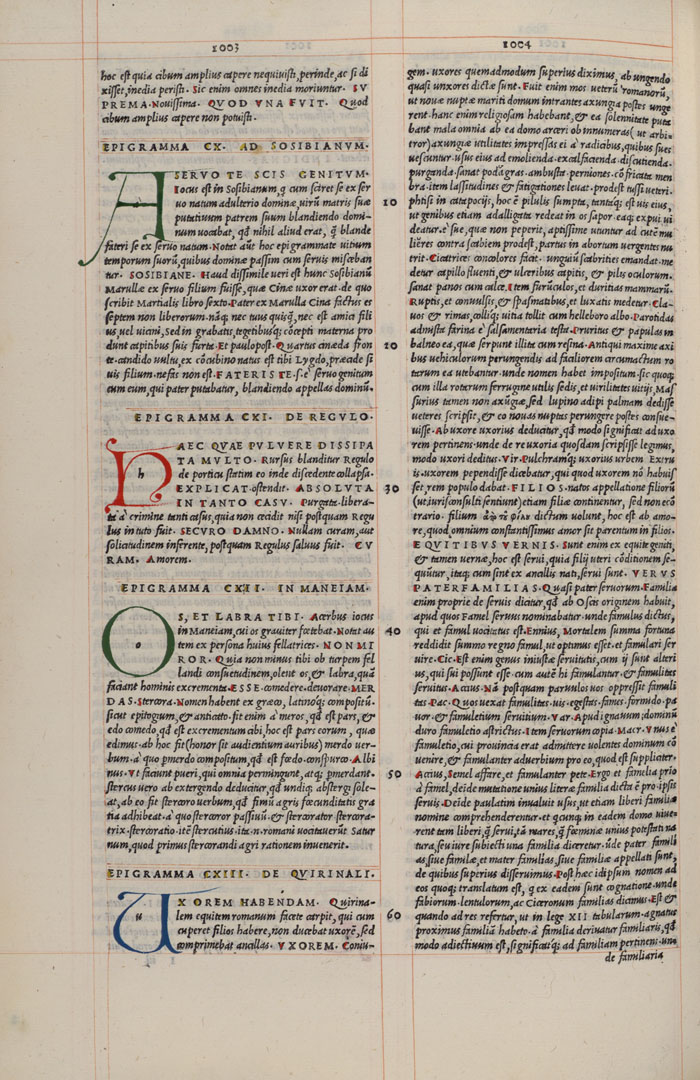 1003
hoc est quia cibum amplius capere nequiuisti, perinde, ac si di
xisset, inedia peristi. Sic enim omnes inedia moriuntur. SV
PREMA. Nouissima. QVOD VNA FVIT. Quod
cibum amplius capere non potuisti.
EPIGRAMMA CX. AD SOSIBIANVM.
A SERVO TE SCIS GENITVM.
Iocus est in Sosibianum, q cum sciret se ex ser
uo natum adulterio dominæ, uirũ matris suæ
putatiuum patrem suum blandiendo domi-
num uocabat, qđ nihil aliud erat, q̃ blande
fateri se ex seruo natum. Notat aũt hoc epigrammate uitium
temporum suorũ, quibus dominæ passim cum seruis miscéban
tur. SOSIBIANE. Haud dissimile ueri est hunc Sosibianũ
Marullæ ex seruo filium fuisse, quæ Cinæ uxor erat. de quo
scribit Martialis libro sexto. Pater ex Marulla Cina factus es
septem non liberorum. náq; nec tuus quisq̃, nec est amici fili
us, uel uicini, sed in grabatis, tegetibusq; cõcepti materna pro
dunt capitibus suis furta. Et paulopost. Quartus cinæda fron
te. candido uultu, ex cõcubino natus est tibi Lygdo, præcide si
uis filium. nefas non est. FATERIS TE. s. è seruo genitum
cum eum, qui pater putabatur, blandiendo appellas dominũ.
EPIGRAMMA CXI. DE REGVLO.
h
HAEC QVAE PVLVERE DISSIPA
TA MVLTO. Rursus blanditur Regulo
de porticu statim eo inde discedente collapsa.
EXPLICAT. ostendit. ABSOLVTA
IN TANTO CASV. Purgata. libera-
ta à crimine tanti casus, quia non cecidit nisi postquam Regu
lus in tuto fuit. SECVRO DAMNO. Nullam curam, aut
solicitudinem inferente, postquam Regulus saluus fuit. CV
RAM. Amorem.
EPIGRAMMA CXII. IN MANEIAM.
o
OS, ET LABRA TIBI. Acerbus iocus
in Maneiam, cui os grauiter fœtebat. Notat au
tem ex persona huius fellatrices. NON MI
ROR. Quia non minus tibi ob turpem fel
landi consuetudinem, olent os, & labra, quã
faciant hominis excrementa. ESSE. comedere. deuorare. MER
DAS. Stercora. Nomen habent ex græco, latinoq; compositũ.
sicut epitogium, & anticato. fit enim à meros, qđ est pars, &
edo comedo, qđ est excrementum cibi, hoc est pars eorum, quæ
edimus. ab hoc fit (honor sit audientium auribus) merdo uer-
bum. à quo pmerdo compositum, qđ est fœdo. conspurco. Albi
nus. Vt faciunt pueri, qui omnia permingunt, atq; pmerdant.
stercus uero ab extergendo deducitur, qđ undiq; abstergi sole-
at, ab eo fit stercoro uerbum, qđ fimũ agris fœcunditatis gra
tia adhibeat. à quo stercoror passiuũ. & stercorator. stercora-
trix. stercoratio. itẽ stercutius. ita. n. romani uocitauerũt Satur
num, quod primus stercorandi agri rationem inuenerit.
EPIGRAMMA CXIII. DE QVIRINALI.
u
UXOREM HABENDAM. Quirina-
lem equitem romanum facete carpit, qui cum
cuperet filios habere, non ducebat uxorẽ, sed
comprimebat ancillas. VXOREM. Coniu-
1004
gem. uxores quemadmodum superius diximus, ab ungendo
quasi unxores dictæ sunt. Fuit enim mos ueterũ romanorũ,
ut nouæ nuptæ mariti domum intrantes axungia postes unge
rent. hanc enim religiosam habebant, & ea solennitate puta
bant mala omnia ab ea domo arceri ob innumeras (ut arbi-
tror) axungiæ utilitates impressas ei à radicibus, quibus sues
uescuntur. usus eius ad emolienda. excalfacienda. discutienda.
purganda. sanat podagras. ambusta. perniones. cõfricata mem
bra. item lassitudines & fatigationes leuat. prodest tussi ueteri.
10
phtisi in catapociis, hoc ẽ pilulis sumpta, tantaq; est uis eius,
ut genibus etiam adalligata redeat in os sapor. eaq; expui ui
deatur. è sue, quæ non peperit, aptissime utuntur ad cutẽ mu
lierẽs contra scabiem prodest, partus in abortum uergentes nu
trit. Cicatrices concolores facit. unguiũ scabrities emandat. me
detur capillo fluenti, & ulceribus capitis, & pilis oculorum.
sanat panos cum calce. Item furũculos, et duritias mammarũ.
Ruptis, et conuulsis, & spasmatibus, et luxatis medetur. Cla-
uos, & rimas, colliq; uitia tollit cum helleboro albo. Parotidas
admista farina è salsamentaria testa. Pruritus & papulas in
20
balneo ea, quæ serpunt illite cum resina. Antiqui maxime axi
bus uehiculorum perungendis ad faciliorem circumactum ro
tarum ea utebantur. unde nomen habet impositum. sic quoq;
cum illa rotarum ferrugine utilis sedis, et uirilitatis uitiis, Mas
surius tamen non axũgiæ, sed lupino adipi palmam dedisse
ueteres scripsit, & eo nouas nuptas perungere postes consue-
uisse. Ab uxore uxorius deducitur, qđ modo significat ad uxo
rem pertinens. unde de re uxoria quosdam scripsisse legimus,
modo uxori deditus. Vir. Pulchramq; uxorius urbem Extru
is. uxorem pependisse dicebatur, qui quod uxorem nõ habuis
30
set, rem populo dabat. FILIOS. natos appellatione filiorũ
(ut iuriscõsulti sentiunt) etiam filiæ continentur, sed non ecõ
trario. filium ἀπὸ τῦ φιλῶ dictum uolunt, hoc est ab amo-
re, quod omnium constantissimus amor sit parentum in filios.
EQVITIBVS VERNIS. Sunt enim ex equite geniti,
& tamen uernæ, hoc est serui, quia filij uteri cõditionem se-
quũtur, itaq; cum sint ex ancillis nati, serui sunt. VERVS
PATERFAMILIAS. Quasi pater seruorum. Familia
enim proprie de seruis dicitur, qđ ab Oscis originem habuit,
apud quos Famel seruus nominabatur. unde famulus dictus,
40
qui et famul uocitatus est. Ennius, Mortalem summa fortuna
reddidit summo regno famul, ut optimus esset. et famulari ser
uire. Cic. Est enim genus iniustæ seruitutis, cum ij sunt alteri
us, qui sui possunt esse. cum autẽ hi famulantur. & famulitas
seruitus. Accius, Nã postquam paruulos uos oppressit famuli
tas. Pac. Quos uexat famulitas. uis. egestus. fames. formido. pa
uor. & famuletium seruitium. Var. Apud ignauum; dominũ
duro famuletio astrictus. Item seruorum copia. Macr. Vnus è
famuletio, cui prouincia erat admittere uolentes dominum cõ
uenire, & famulanter aduerbium pro eo, quod est suppliciter.
50
Accius, Semel affare, et famulanter pete. Ergo et familia prio
à famel, deide mutatione unius literæ familia dicta ẽ pro ipsis
seruis. Deide paulatim inualuit usus, ut etiam liberi familiæ
nomine comprehenderentur. et qcunq; in eadem domo uiue-
rent tam liberi, q̃ serui, tã mares, q̃ fœminæ unius potestati na
tura, seu iure subiecti una familia diceretur. ũde pater famili
as, siue familiæ, et mater familias, siue familiæ appellati sunt,
de quibus superius disseruimus. Post hæc idipsum nomen ad
eos quoq; translatum est, q ex eadem sunt cognatione. unde
fabiorum. lentulorum, ac Ciceronum familias dicimus. Est &
60
quando ad res refertur, ut in lege XII tabularum. agnatus
proximus familiã habeto. à familia deriuatur familiaris, qđ
modo adiectiuum est, significatq; ad familiam pertinens. unde
de familiaria